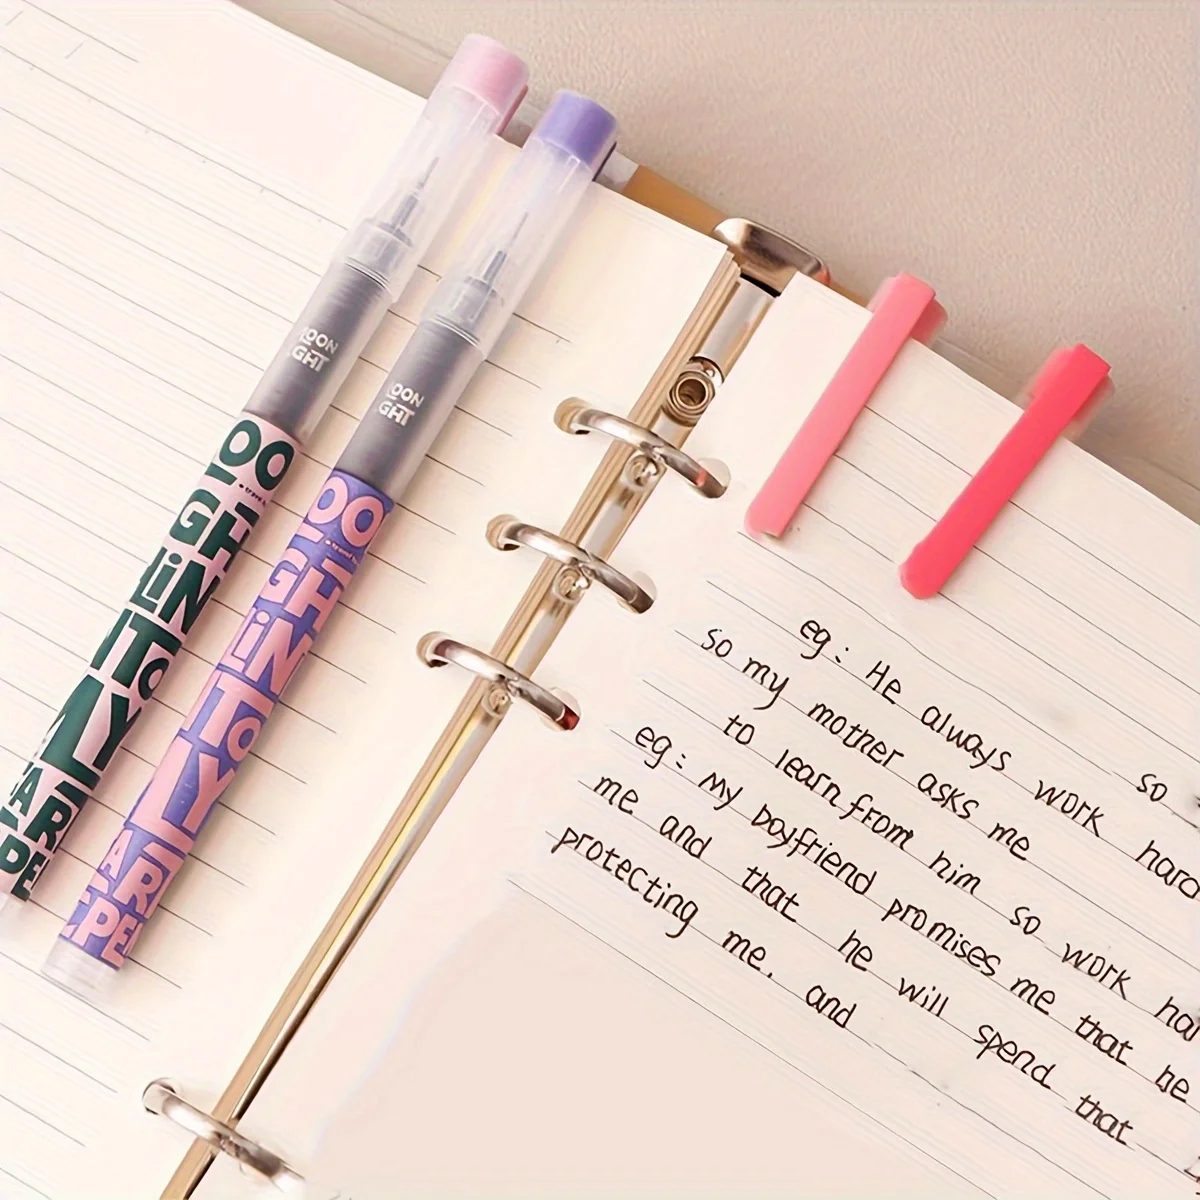 OON
GHT
OON
GHT
OO
GH
LiN
ITTO
LY
AR
PE
OO
GH
LiN
ITTO
LY
ART
PE
eg: He always work hard
so
so my mother asks me
to learn from him so work
eg: My boyfriend promises me that he
me and that he will spend that
protecting me, and